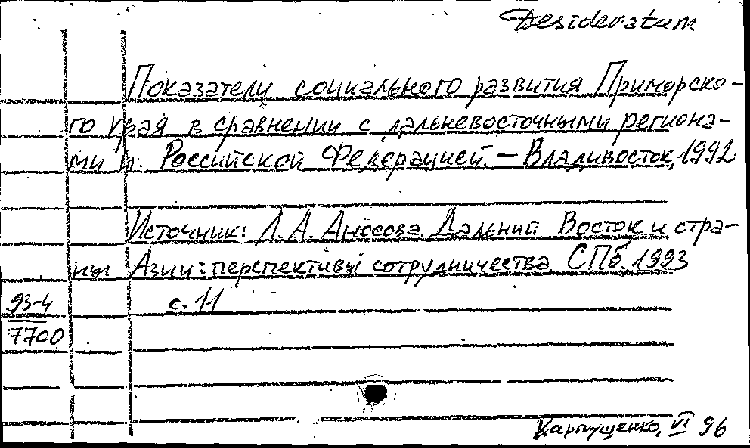 Desideratum
Показатели социального развития Приморско-
го края в сравнении с дальневосточными региона-
ми и Российской Федерацией. – Владивосток, 1992
Источник: Л.А. Аносова. Дальний Восток и стра-
ны Азии: перспективы сотрудничества СПб. 1993
с. 11
93-4
7700
Карпущенко, VI 96